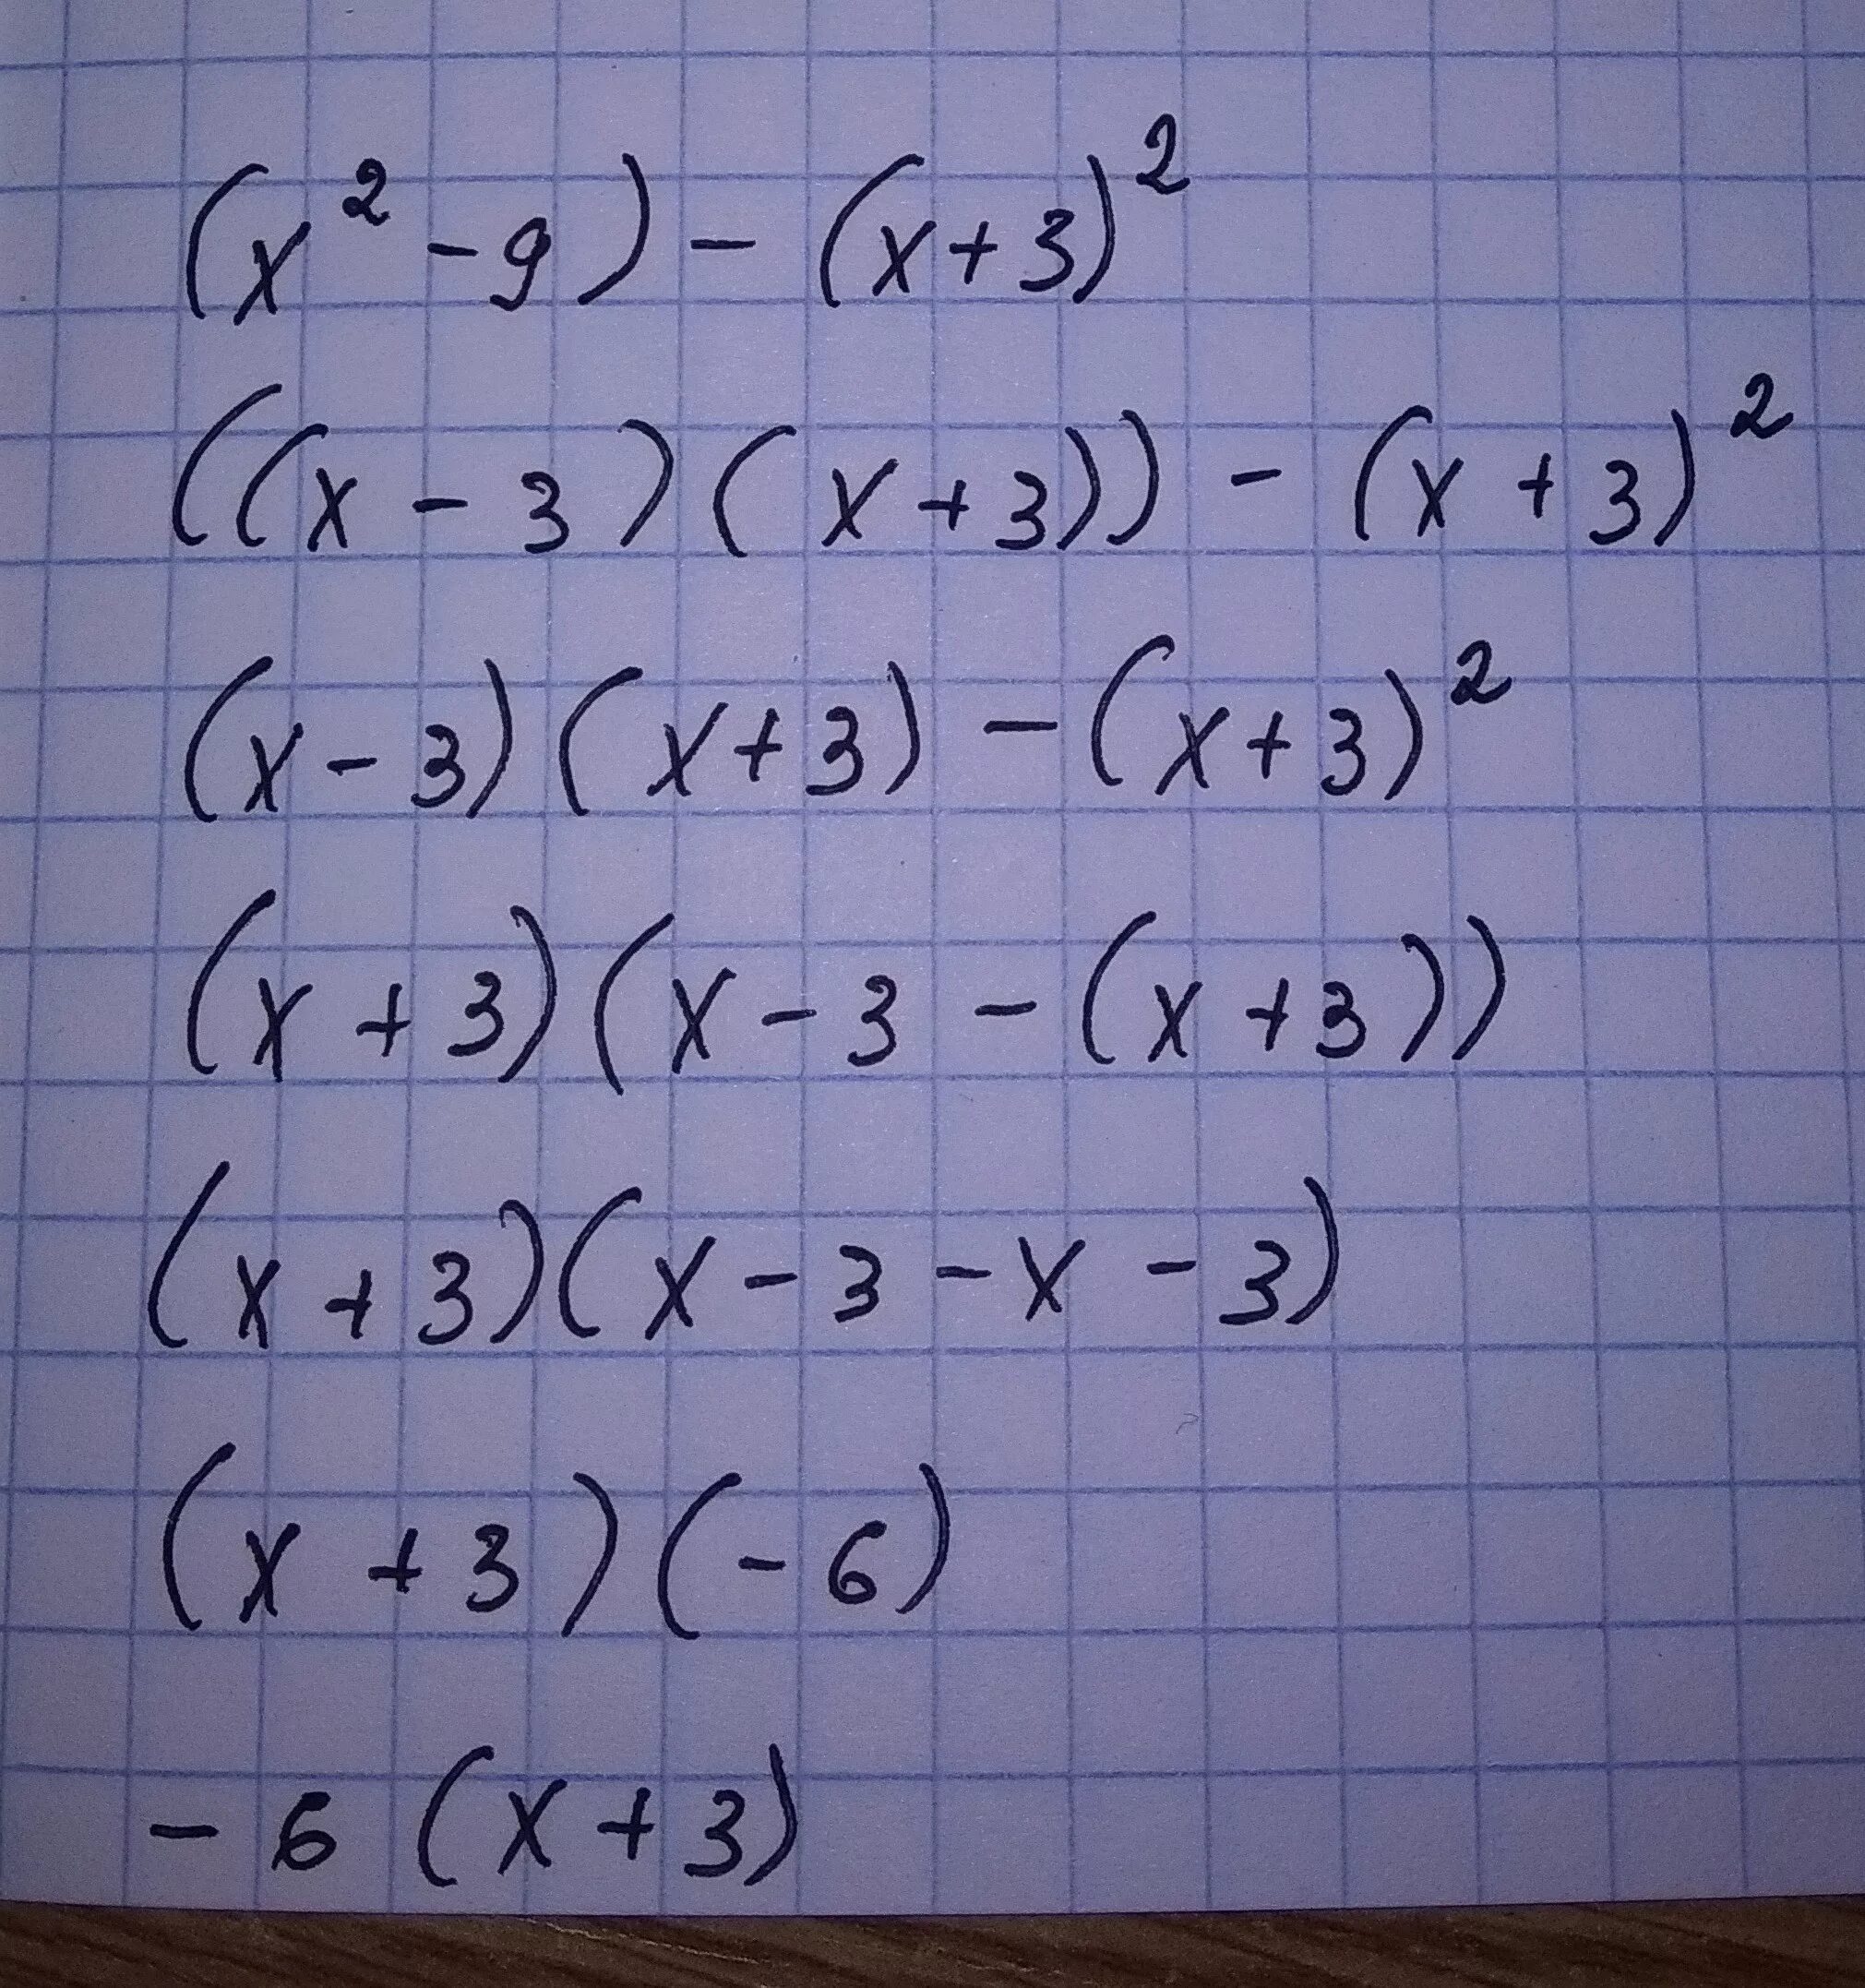 (x² - 9) - (x+3)²
((x - 3)(x+3)) - (x + 3)²
(x - 3)(x+3) - (x+3)²
(x + 3)(x - 3 - (x + 3))
(x + 3)(x - 3 - x - 3)
(x + 3)(- 6)
- 6 (x + 3)